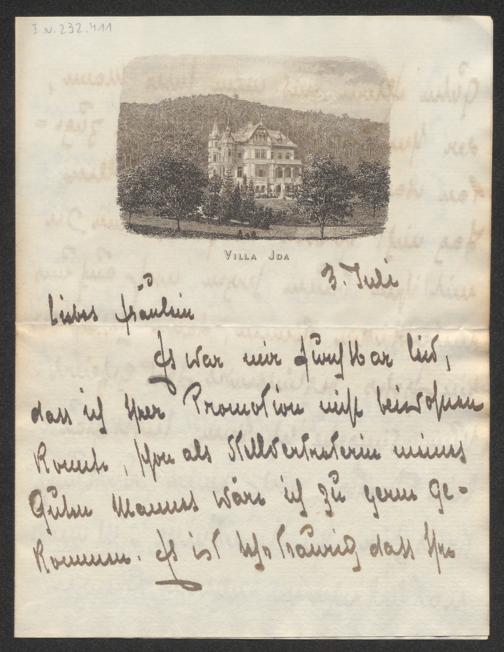 I.N. 232.411
VILLA JDA
3. Juli
Liebes Fräulein
Es war mir furchtbar leid,
dass ich Ihrer Promotion nicht beiwohnen
konnte, schon als Stellvertreterin meines
Guten Mannes wäre ich zu gern ge-
kommen. Es ist so traurig dass Ihre